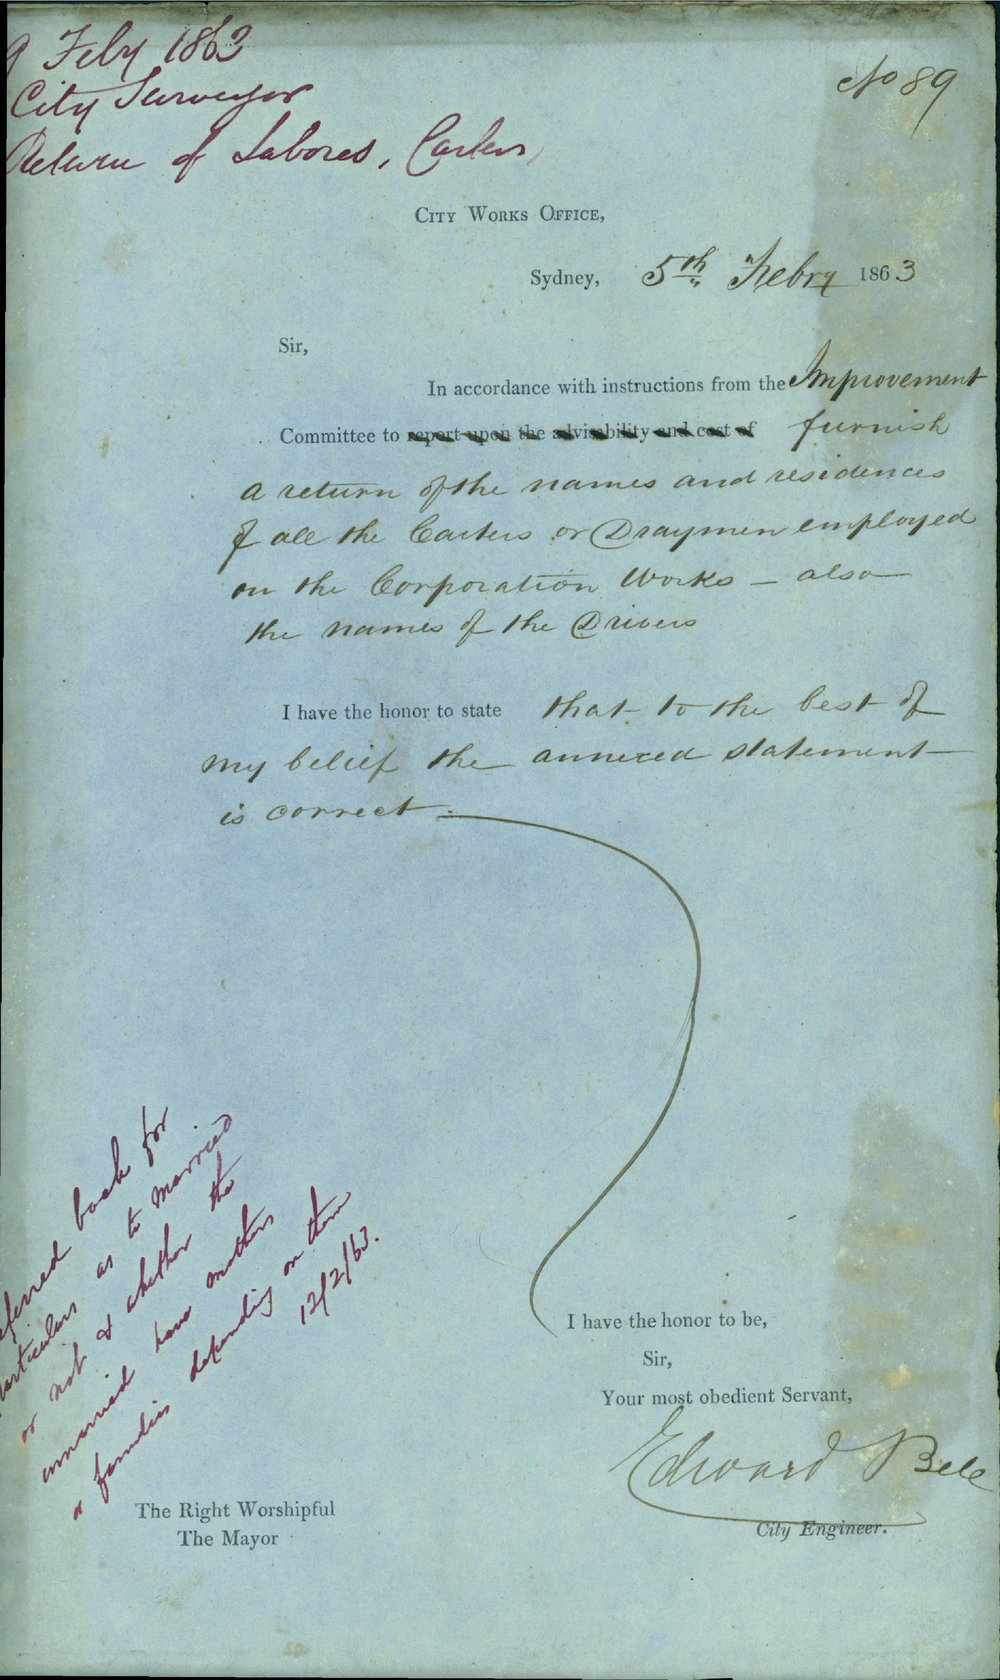 9 Feby 1863
City Surveyor
Return of Labores, Carters,
No 89
CITY WORKS OFFICE,
Sydney, 5th Febry 1863
Sir,
In accordance with instructions from the Improvement
Committee to report upon the advisability and cost of furnish
a return of the names and residences
of all the Carters or Draymen employed
on the Corporation Works - also
the names of the Drivers
I have the honor to state that to the best of
my belief the annexed statement
is correct.
eferred back for
particulars as to married
or not & whether the
unmarried have mothers
or families depending on them
12/2/63.
I have the honor to be,
Sir,
Your most obedient Servant,
Edward Bell
City Engineer.
The Right Worshipful
The Mayor